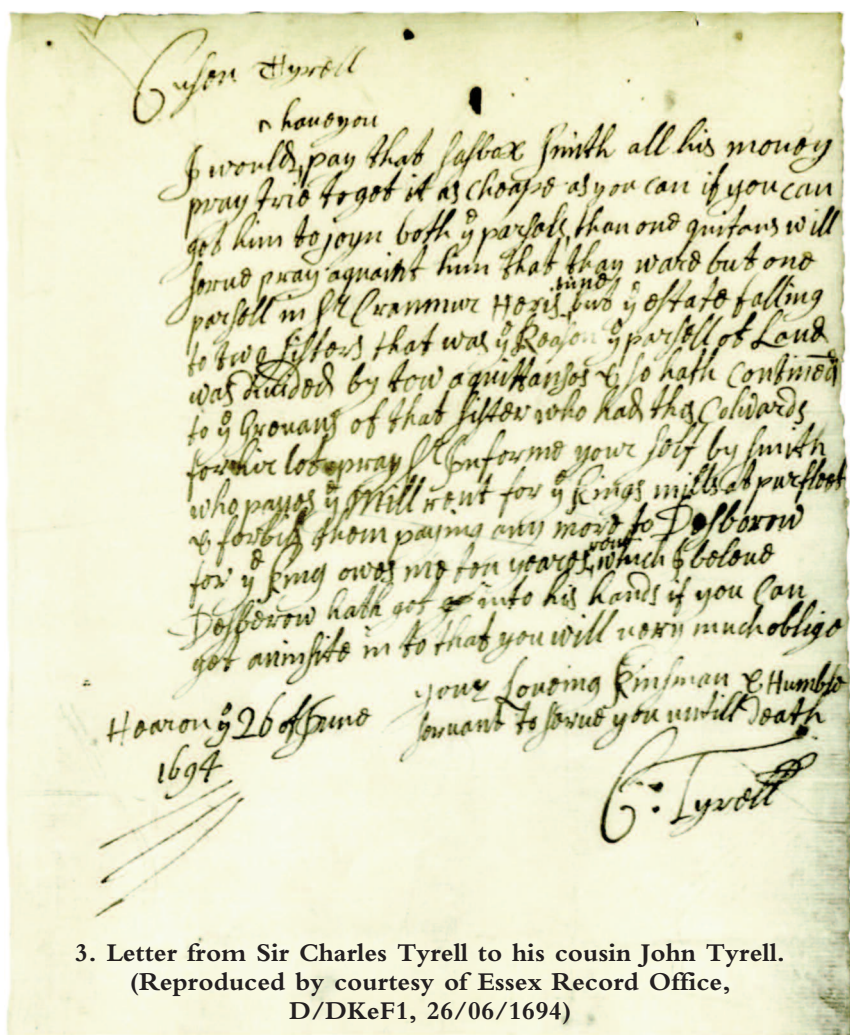 Cusen Tyrell
haue you
I would, pay that Jasbax Smith all his money
pray trie to get it as cheape as you can if you can
get him to joyn both yͤ parsels, than one quitans will
serue pray aquaint him that thay ware but one
time
parsell in Sr Cranmur Heris but yͤ estate falling
to two sisters that was yͤ Reason yͤ parsell of Land
was diuided by tow aquittanses & so hath continued
to yͤ of that sister who had the Colwards
for hir lot pray Sr Informe your self by Smith
who payes yͤ Mill rent for yͤ Kings mills at purfleet
& forbid them paying any more to Desberow
rent
for yͤ King owes me ten yeares, which I beleue
Desberow hath got into his hands if you Can
get an insite in to that you will uery much oblige
your Loueing Kinsman & Humble
seruant to serue you untill Death
Hearon yͤ 26 of June
1694
C: Tyrell
3. Letter from Sir Charles Tyrell to his cousin John Tyrell.
(Reproduced by courtesy of Essex Record Office,
D/DKeF1, 26/06/1694)